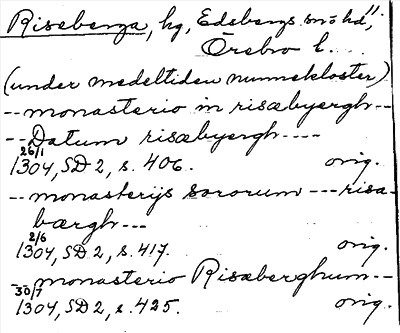 Riseberga, kg, Edsbergs snö hd,
Örebro l.
(under medeltiden nunnekloster)
-- monasterio in risæbyergh --
-- Datum risæbyergh ----
26/1
1304, SD 2, s. 406. orig.
-- monasterijs sororum --- risæ-
bærgh ---
2/6
1304, SD 2, s. 417. orig.
-- monasterio Risæberghum --
30/7
1304, SD 2, s. 425. orig.